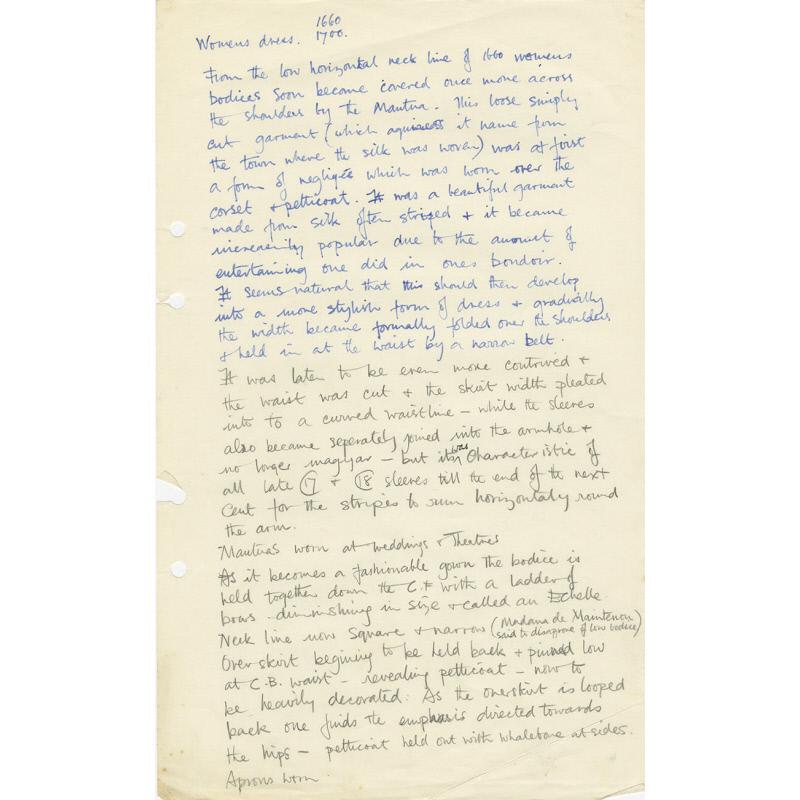 Womens dress. 1660
1700.
From the low horizontal neck line of 1660 womens
bodices soon become covered once more across
the shoulders by the Mantua. This loose simply
cut garment (which aquiress it name from
the town where the silk was woven) was at first
a form of negligée which was worn over the
corset + petticoat. It was a beautiful garment
made from silk often striped + it became
increasinly popular due to the amount of
entertaining one did in ones boudoir.
It seems natural that this should then develop
into a more stylish form of dress + gradually
the width became formally folded over the shoulders
+ held in at the waist by a narrow belt.
It was later to be even more contrived +
the waist was cut + the skirt width pleated
into to a curved waistline – while the sleeves
also became seperately joined into the armhole +
no longer magyar – but it was characteristic of
all late 17 + 18 sleeves till the end of the next
cent for the stripes to run horizontaly round
the arm.
Mantuas worn at weddings + Theatres
As it becomes a fashionable gown the bodice is
held together down the C.F with a ladder of
bows - diminishing in size + called an Echelle.
Neck line now square + narrow (Madana de Maintenon
said to disaprove of low bodice)
Overskirt begining to be held back + pinned low
at C.B. waist – revealing petticoat – now to
be heavily decorated. As the overskirt is looped
back one finds the emphasis directed towards
the hips – petticoat held out with whalebone at sides.
Aprons worn